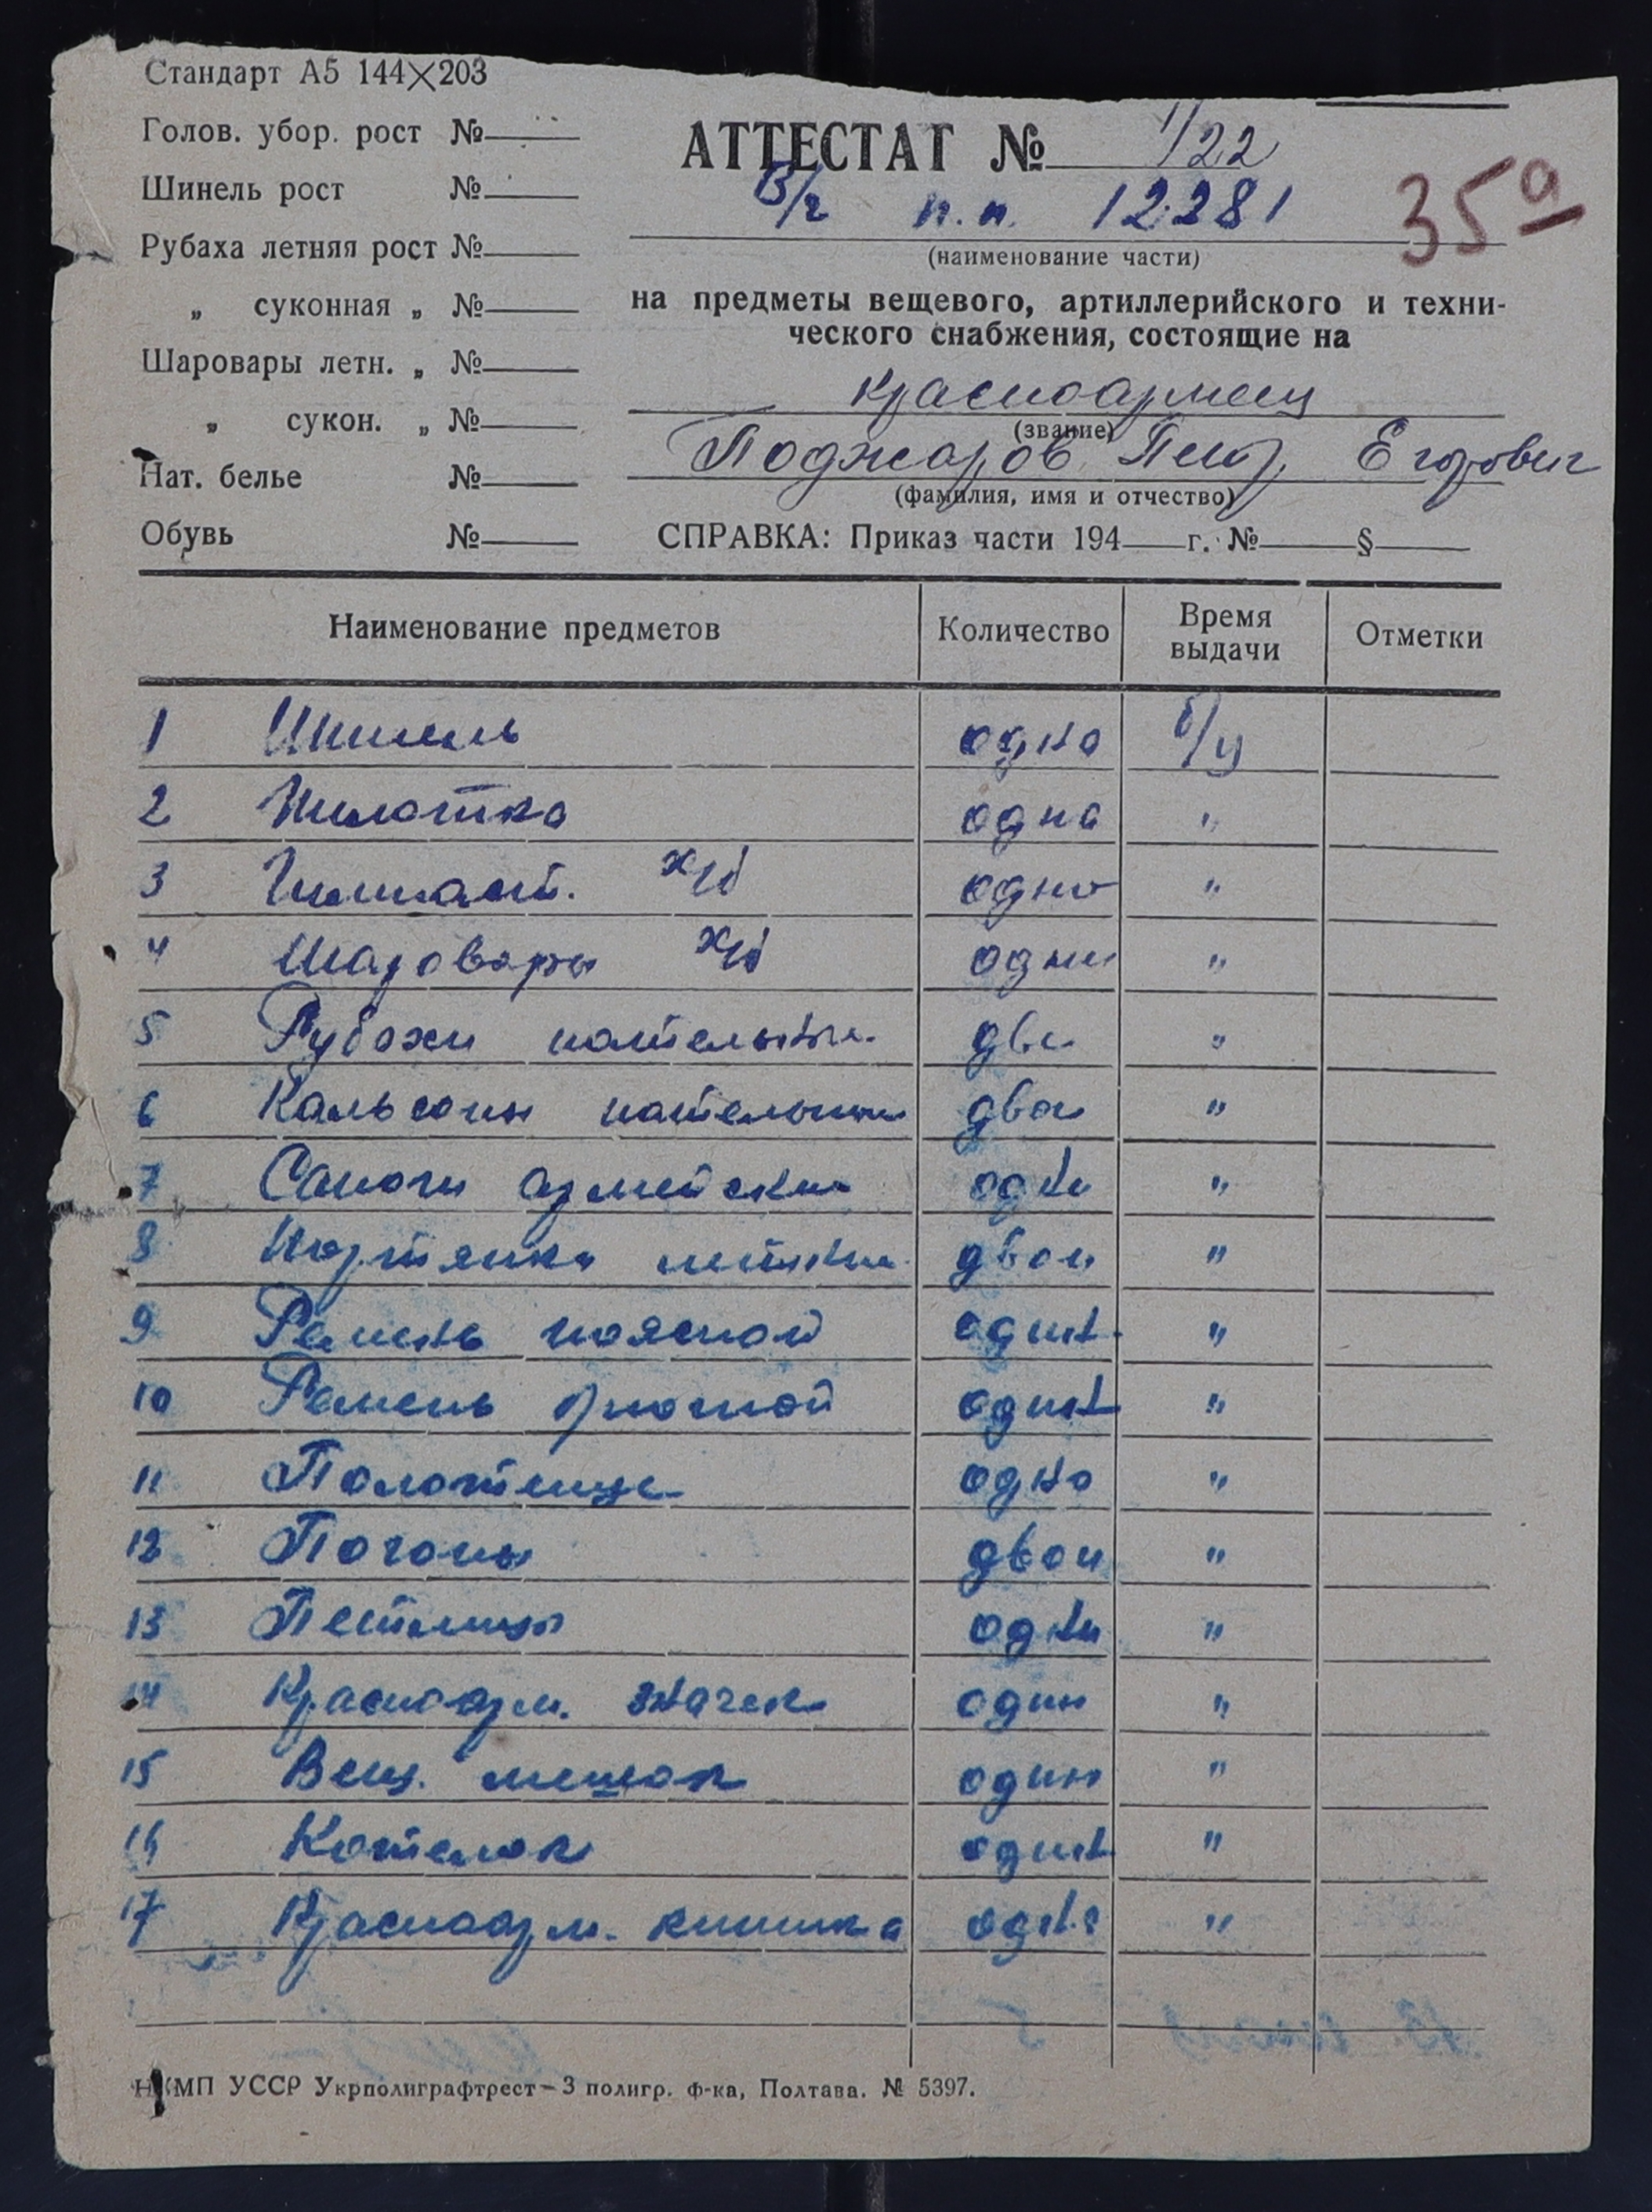 Стандарт А5 144×203
Голов. убор. рост №
Шинель рост №
Рубаха летняя рост №
„ суконная „ №
Шаровары летн. „ №
„ сукон. „ №
Нат. белье №
Обувь №
АТТЕСТАТ № 1/22
В/ч п.п. 12281
35а
(наименование части)
на предметы вещевого, артиллерийского и техни-
ческого снабжения, состоящие на
красноармеец
(звание)
Поджаров Петр Егорович
(фамилия, имя и отчество)
СПРАВКА: Приказ части 194 г. № §
Наименование предметов Количество Время выдачи Отметки
1 Шинель одна б/у
2 Пилотка одна "
3 Гимнаст. х/б одна "
4 Шаровары х/б одни "
5 Рубахи нательные две "
6 Кальсоны нательные двои "
7 Сапоги армейские одни "
8 Портянки летние двои "
9 Ремень поясной один "
10 Ремень брючной один "
11 Полотенце одно "
12 Погоны двои "
13 Петлицы одни "
14 Красноарм. значек один "
15 Вещ. мешок один "
16 Котелок один "
17 Красноарм. книжка одна "
НКМП УССР Укрполиграфтрест—3 полигр. ф-ка, Полтава. № 5397.